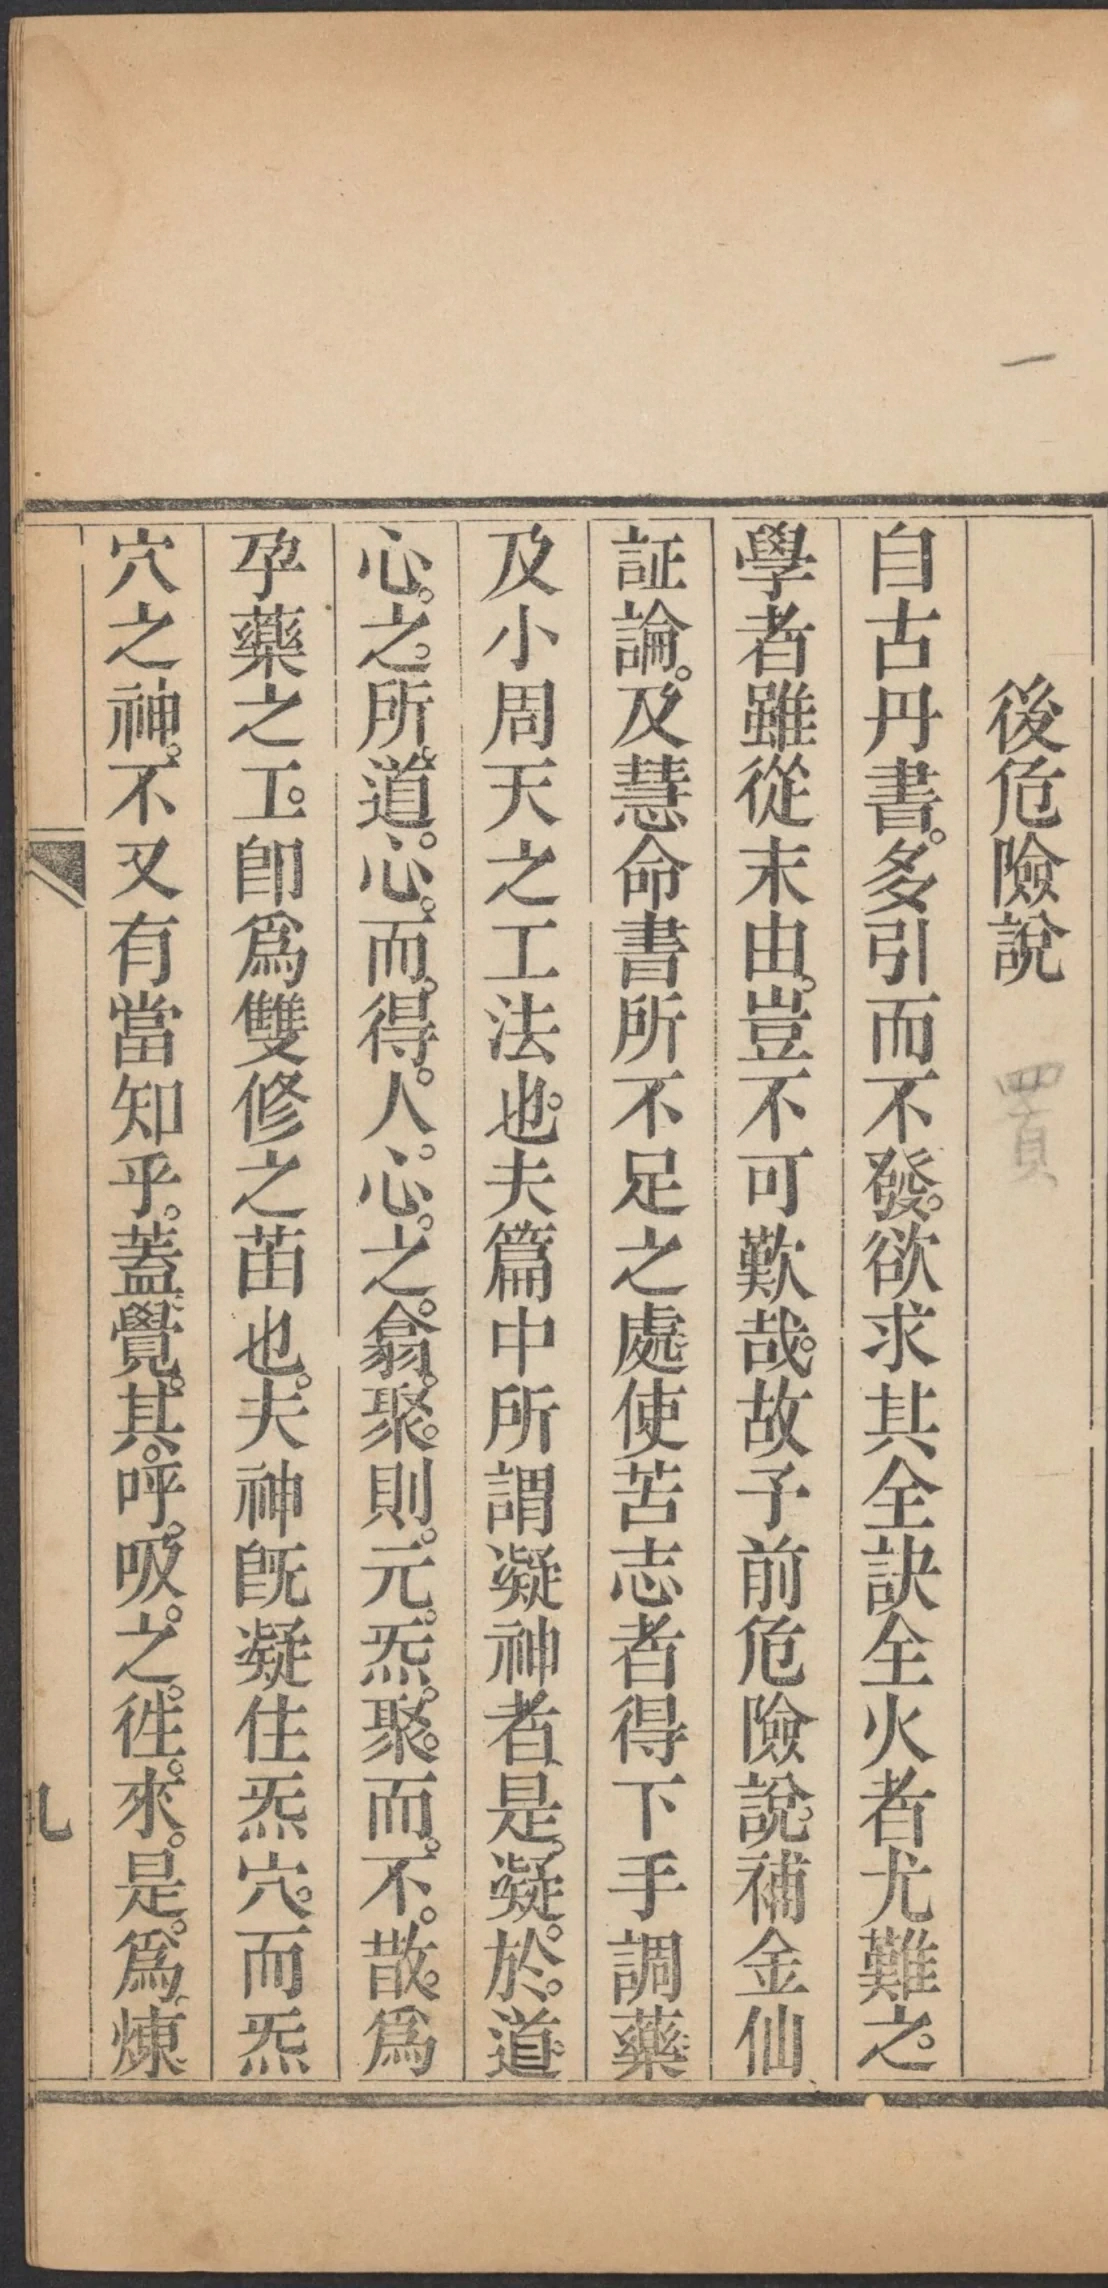 一
後危險說 四頁
自古丹書。多引而不發。欲求其全訣全火者尤難之。
學者雖從末由。豈不可歎哉。故予前危險說。補金仙
証論。及慧命書所不足之處使苦志者得下手調藥
及小周天之工法也。夫篇中所謂凝神者、是。凝。於。道。
心。之。所。道。心。而。得。人。心。之。翕。聚。則。元。炁。聚。而。不。散。爲
孕藥之工。卽爲雙修之苗也。夫神旣凝住炁穴。而炁
穴之神。不又有當知乎。蓋覺。其。呼。吸。之。徃。來。是。爲。煉。
九